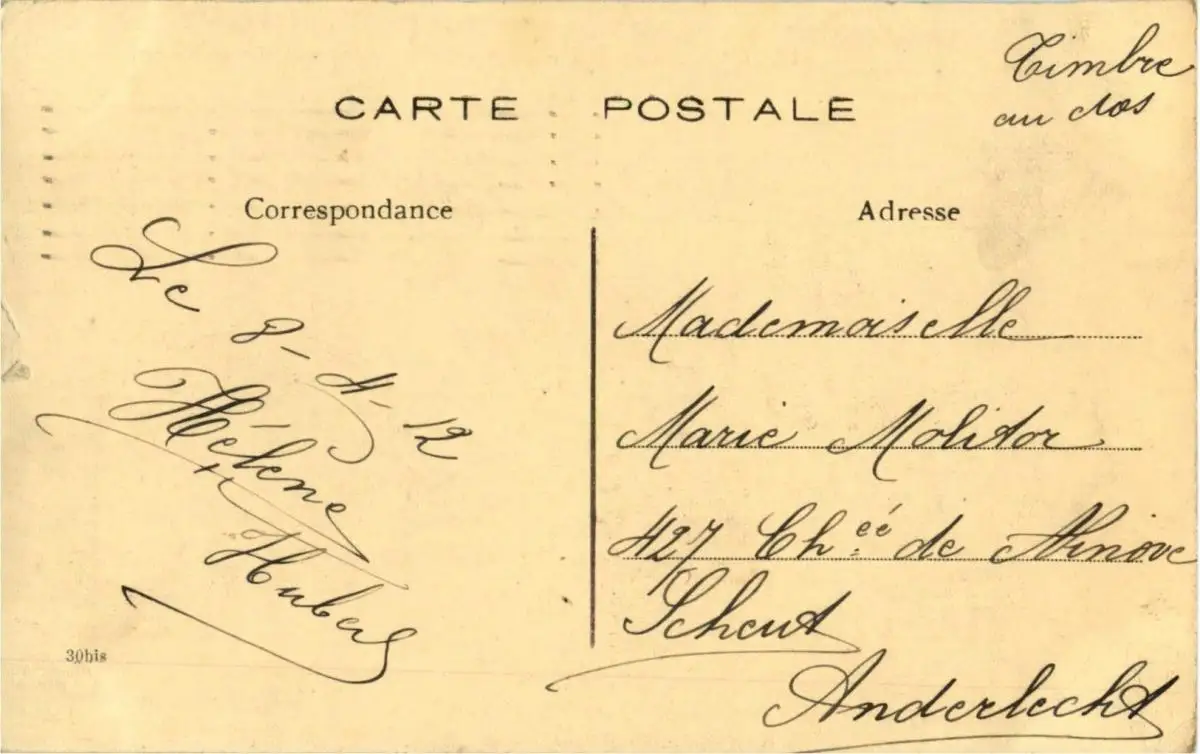 Timbre
au dos
CARTE POSTALE
Correspondance
Adresse
Le 8-4-12
Hélène
Mademoiselle
Marie Molitor
427 Chéé de Ninove
Scheut
Anderlecht
30bis